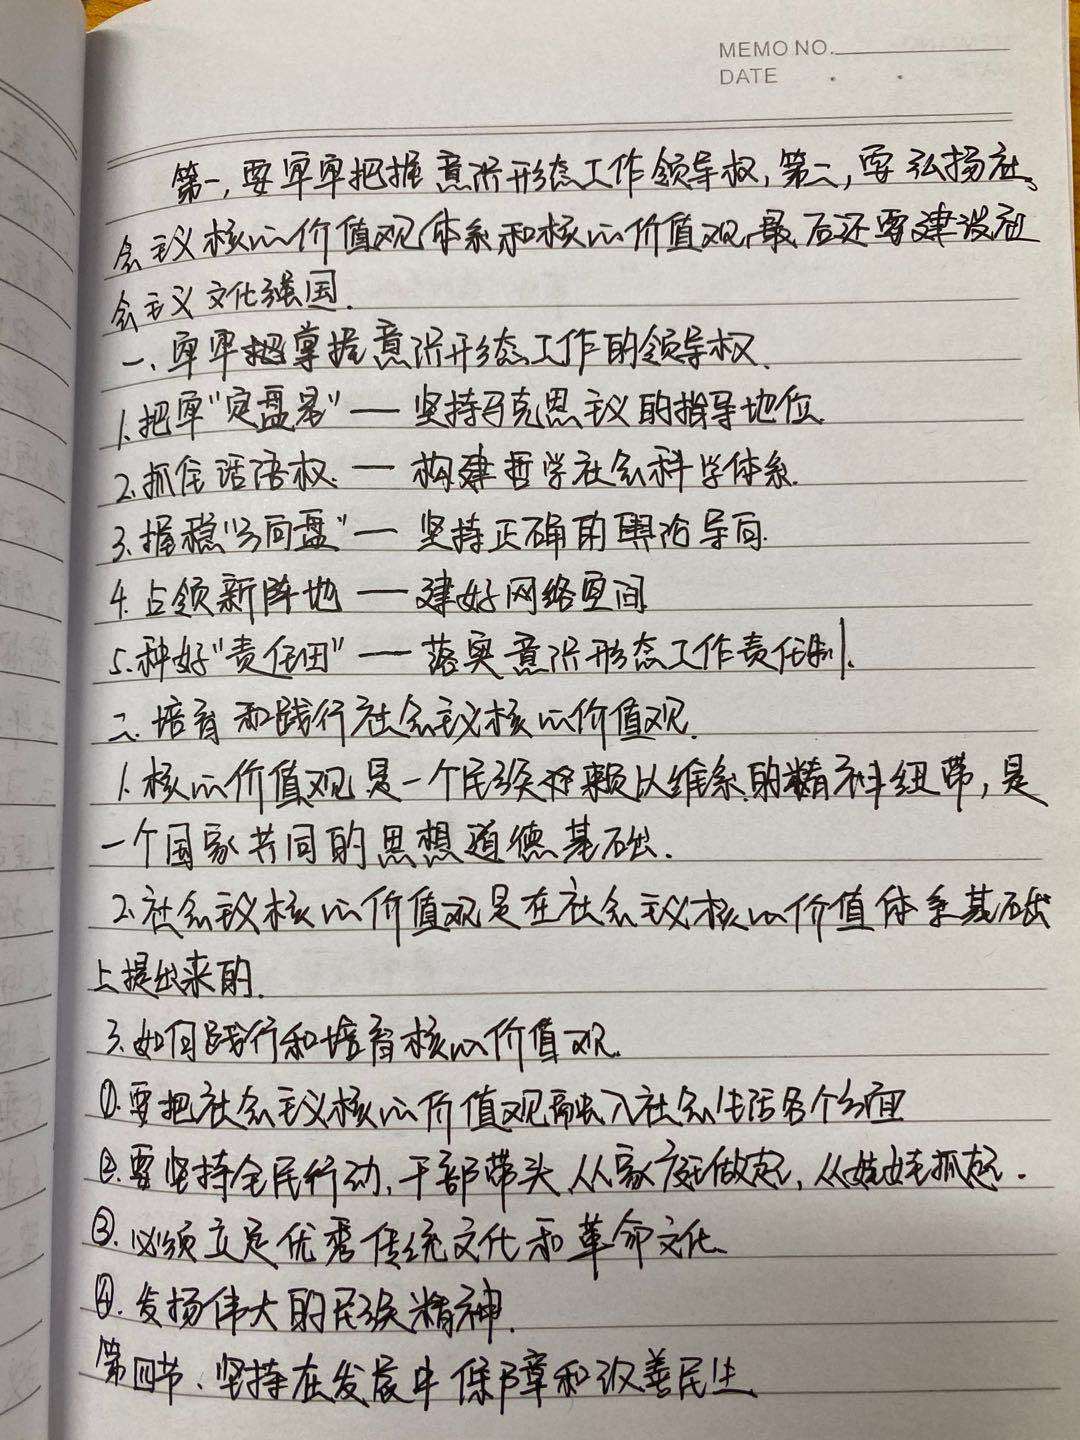 MEMO NO.
DATE
第一,要牢牢把握意识形态工作领导权,第二,要弘扬社
会主义核心价值观体系和核心价值观,最后还要建设社
会主义文化强国.
一、牢牢把掌握意识形态工作的领导权.
1.把牢“定盘星”— 坚持马克思主义的指导地位.
2.抓住话语权.— 构建哲学社会科学体系.
3.握稳“方向盘”— 坚持正确的舆论导向.
4.占领新阵地 — 建好网络空间
5.种好“责任田”— 落实意识形态工作责任制.
二.培育和践行社会主义核心价值观.
1.核心价值观是一个民族赖以维系的精神纽带,是
一个国家共同的思想道德基础.
2.社会主义核心价值观是在社会主义核心价值体系基础
上提出来的.
3.如何践行和培育核心价值观.
①.要把社会主义核心价值观融入社会生活各个方面
②.要坚持全民行动,干部带头,从家庭做起,从娃娃抓起.
③.必须立足优秀传统文化和革命文化.
④.发扬伟大的民族精神.
第四节、坚持在发展中保障和改善民生